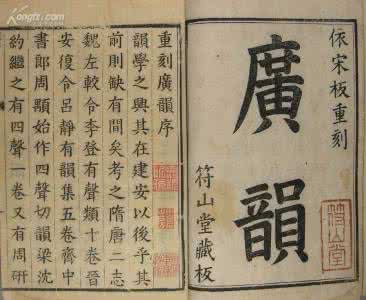 依宋板重刻
廣韻
符山堂藏板
符山堂
重刻廣韻序
韻學之興其在建安以後乎其
前則缺有間矣考之隋唐二志
魏左較令李登有聲類十卷晉
安復令呂靜有韻集五卷齊中
書郎周顒始作四聲切韻梁沈
約繼之有四聲一卷又有周研